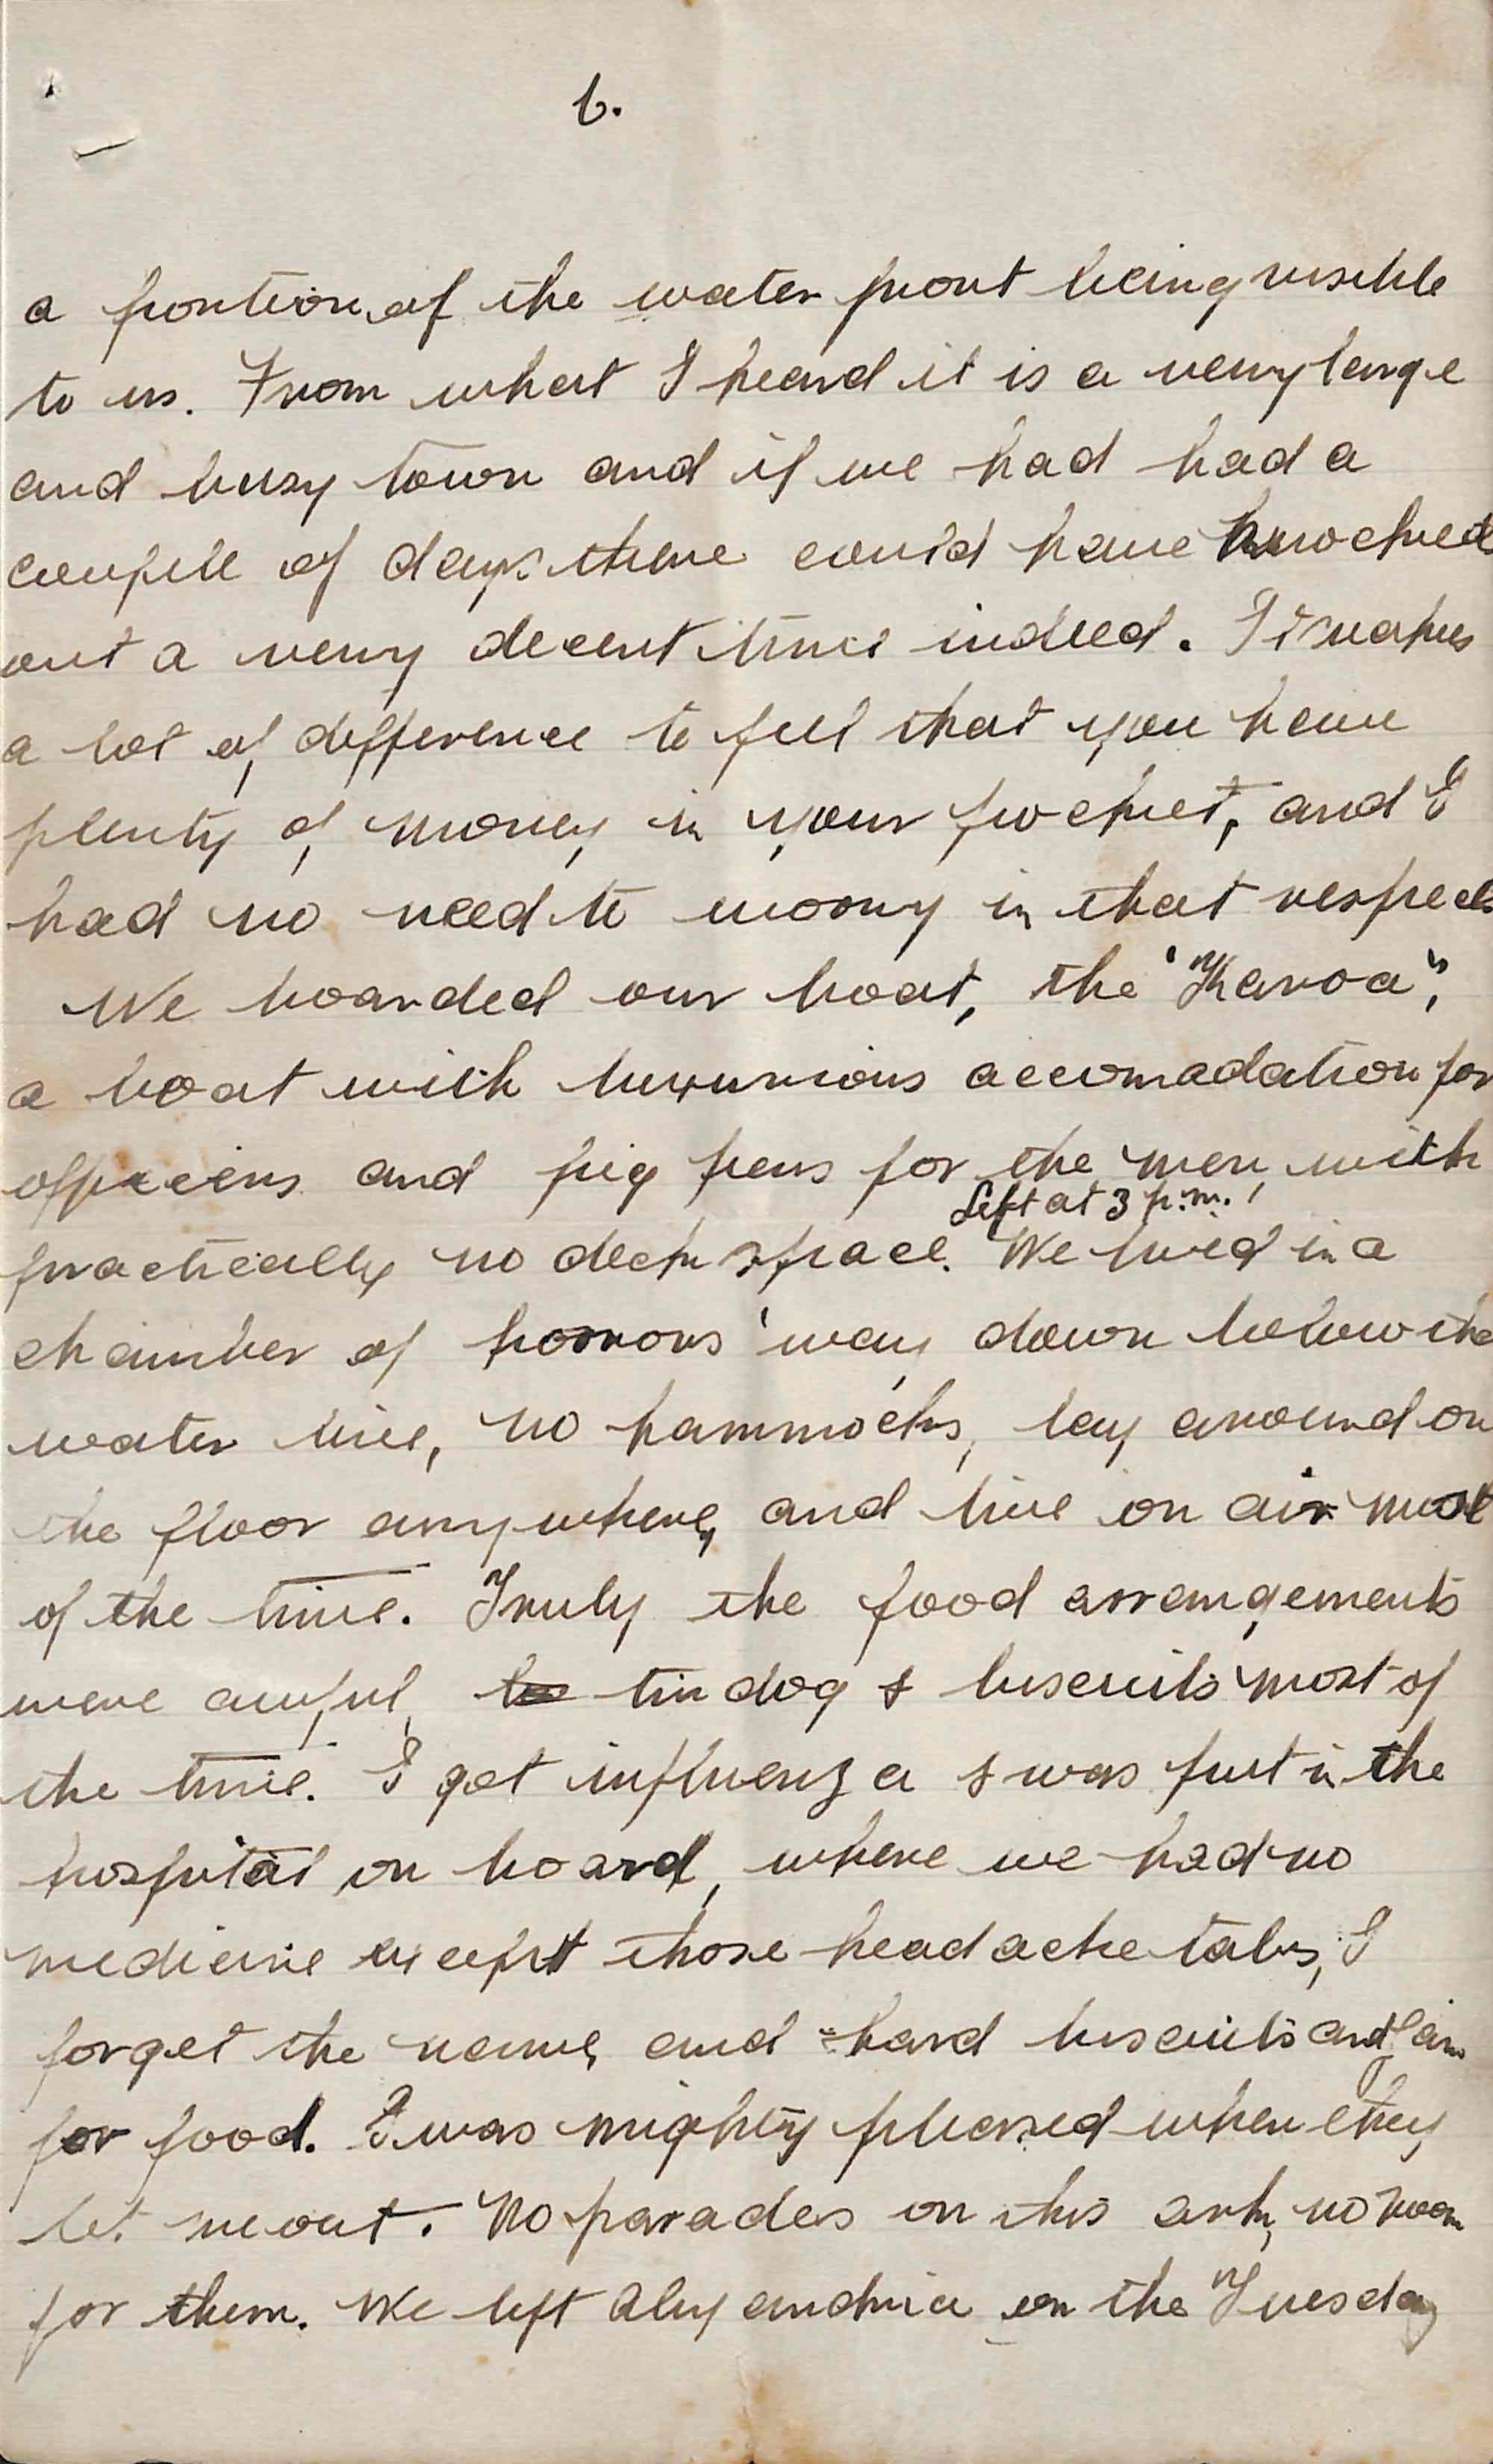 6.
a portion of the water front being visible
to us. From what I heard it is a very large
and busy town and if we had had a
couple of days there could have knocked
out a very decent time indeed. It makes
a lot of difference to feel that you have
plenty of money in your pocket, and I
had no need to worry in that respect
We boarded our boat, the "Karoa",
a boat with luxurious accomadation for
officers and pig pens for the men, with
Left at 3 p.m.
practically no deck space. We lived in a
chamber of horrors 'way down below the
water line, no hammocks, lay around on
the floor anywhere, and live on air most
of the time. Truly the food arrangements
were awful, tin dog & biscuits most of
the time. I got influenza & was put in the
hospital on board, where we had no
medicine except those headache tabs, I
forget the name, and hard biscuits and jam
for food. I was mighty pleased when they
let me out. No parades on this ark, no room
for them. We left Alexandria on the Tuesday